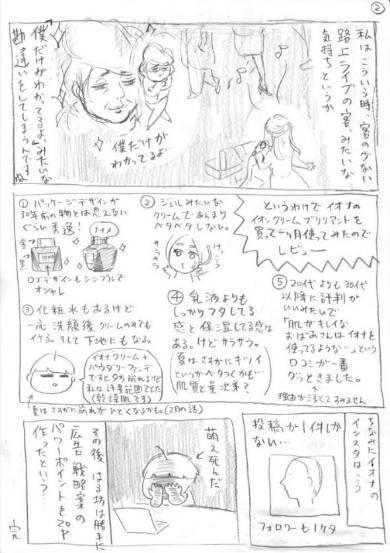 ②
私はこういう時、客の少ない
路上ライブの客みたいな
気持ちというか
「僕だけがわかってるよ」みたいな
勘違いをしてしまうんですね
僕だけが
わかってるよ
というわけでイオナの
イオンクリームブリリアントを
買って一ヶ月使ってみたので
レビュー
① パッケージデザインが
30年前の物とは思えない
ぐらい秀逸!
ナナメ
ロゴデザインもシンプルで
オシャレ
② ジェルみたいな
クリームであんまり
ベタベタしない。
③ 化粧水もあるけど
一応洗顔後クリームのみでも
イケる。そして下地にもなる。
イオナクリーム+
パウダリーファンデ
ですと夕方崩れるけど
私は許容範囲でした
(乾燥肌です)
夏はさすがに崩れがひどくなるかも。(2月の話)
④ 乳液よりも
しっかりフタしてる
感と保湿してる感は
ある。けどサラサラ。
夏はさすがにギリィ
というかベタつくかも…
肌質と量次第で
⑤ 20代よりも30代
以降に評判が
いいみたいで
「肌がキレイな
おばあさんはイオナを
使ってるような…」という
口コミが一番
グッときました。
理由が浅くてすみません
ちなみにイオナの
インスタはこう
投稿が1件しか
ない…
フォロワーも1ケタ
萌え死んだ
その後はる坊は勝手に
広告戦略案の
パワーポイントを20P
作ったという…
完